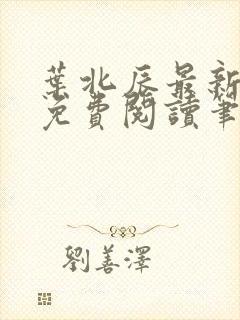 葉北辰最新
免費閱讀筆
劉善澤